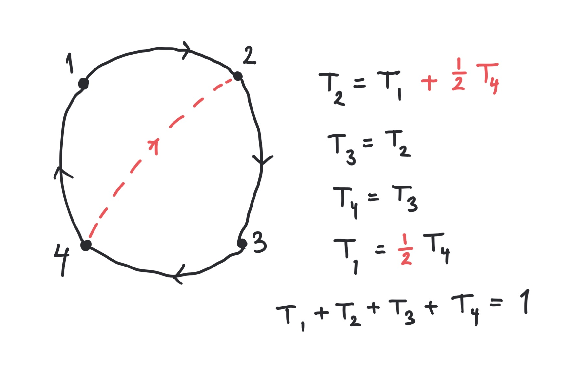 1
2
T₂ = T₁ + ½ T₄
T₃ = T₂
T₄ = T₃
4
3
T₁ = ½ T₄
T₁ + T₂ + T₃ + T₄ = 1